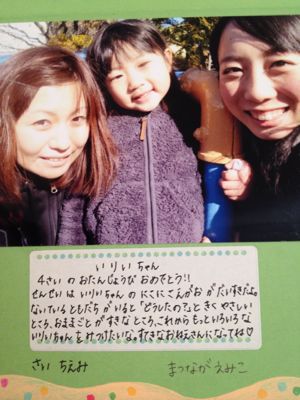 いりいちゃん
4さい の おたんじょうび おめでとう!!
せんせい は いりいちゃん の にこにこえがお が だいすきだよ。
ないている ともだち が いると "どうしたの?" と きく やさしい
ところ、おままごと が すきな ところ、これから もっと いろいろ な
いりいちゃん を みつけたいな。すてきな おねえさん に なってね♡
さい ちえみ
まつなが えみこ